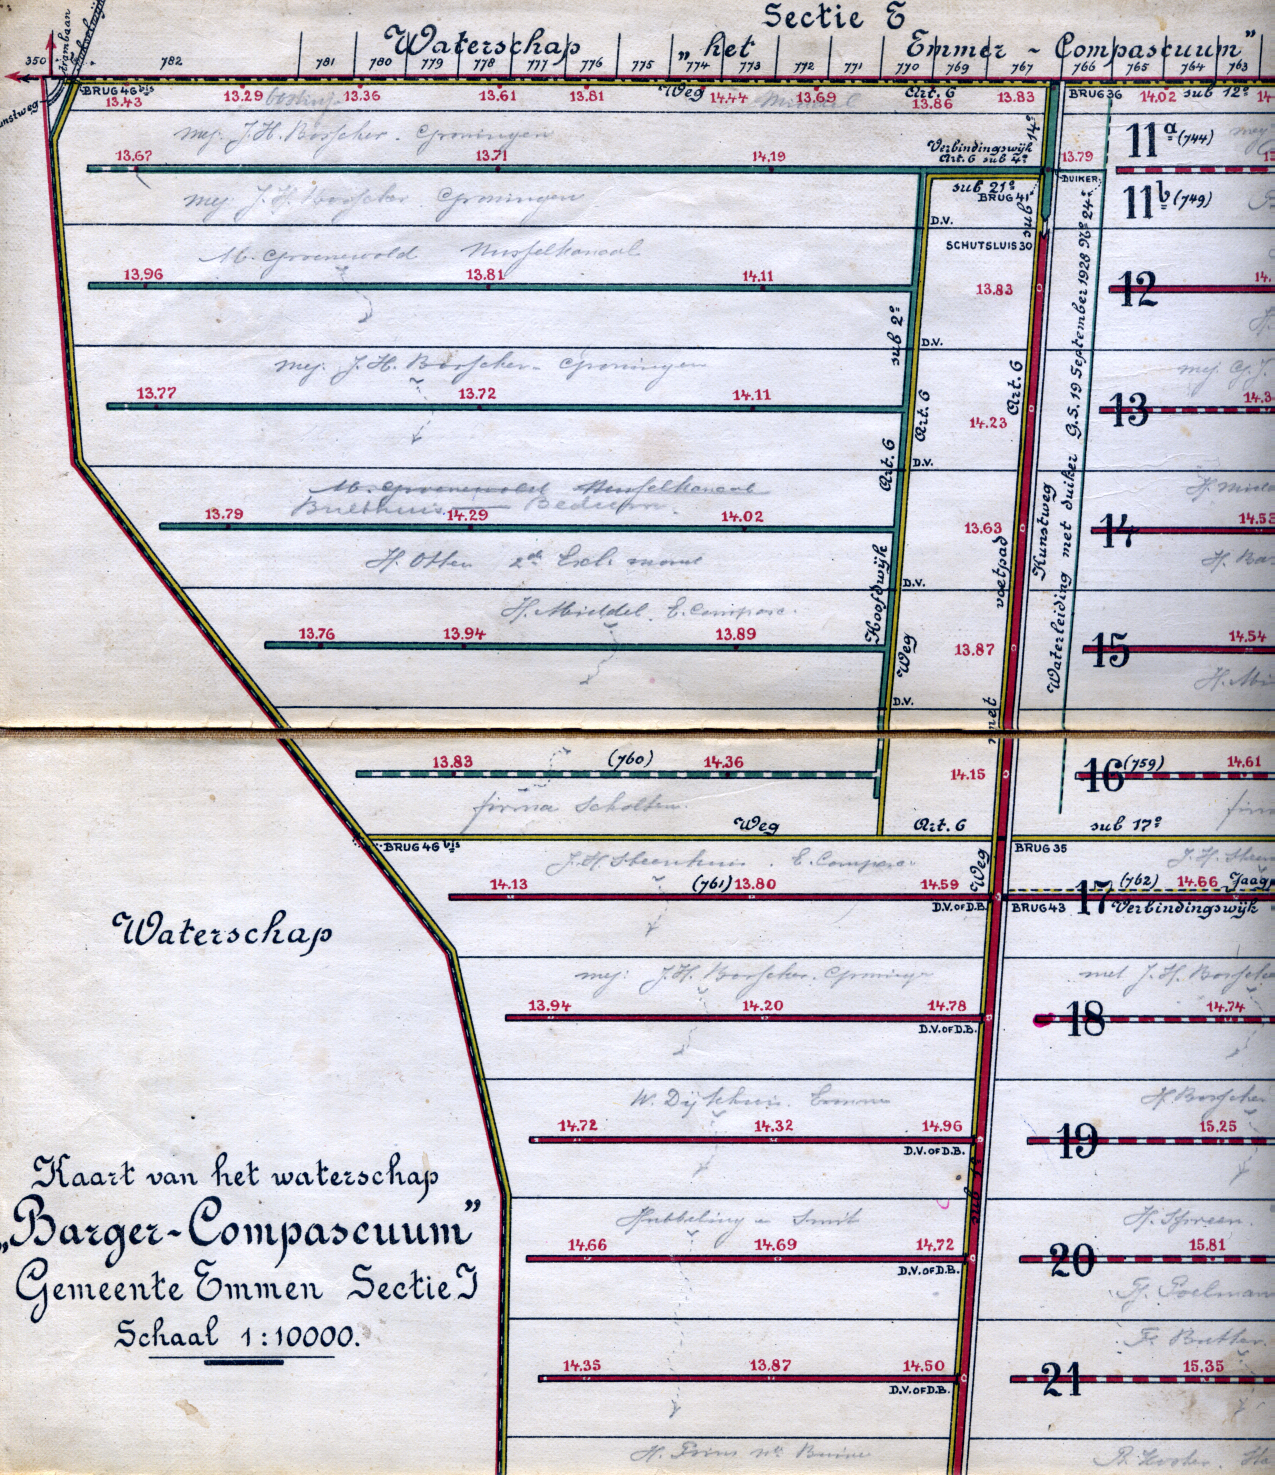 Sectie E
Waterschap „het Emmer-Compascuum"
350 782 781 780 779 778 777 776 775 774 773 772 771 770 769 767 766 765 764 763
trambaan
Kunstweg
BRUG 46 bis
Weg Art. 6 BRUG 36 sub 12º
13.43 13.29 13.36 13.61 13.81 14.44 13.69 13.86 13.83 14.02
Middel
mej. J.H. Borscher. Groningen
14º
11ª (744)
Verbindingswijk
Art. 6 sub 4º
13.67 13.71 14.19 13.79
DUIKER
sub 21º
BRUG 41
mej. J.H. Borscher Groningen
11b (749)
D.V.
sub
SCHUTSLUIS 30
M. Groenewold Musselkanaal
13.96 13.81 14.11 13.83
12
sub 2º
D.V.
mej. J.H. Borscher - Groningen
13.77 13.72 14.11 14.23
13
Art. 6
Art. 6
Art. 6
D.V.
M. Groenewold Musselkanaal
Bulthuis Bedum.
13.79 14.29 14.02 13.63
14
H. Otten 2de Excl. mond
Hoofdwijk
Weg
voetpad
Kunstweg
Waterleiding met duiker G.S. 19 September 1928 Nº 24.
D.V.
H. Middel. E. Compasc.
13.76 13.94 13.89 13.87 14.54
15
D.V.
met
13.83 (760) 14.36 14.15 14.61
16 (759)
firma Scholten.
Weg Art. 6 sub 17º
BRUG 46 bis BRUG 35
J.H. Steenhuis. E. Compasc.
Weg
14.13 (761) 13.80 14.59 (762) 14.66
D.V. OF D.B. BRUG 43 17 Verbindingswijk
Waterschap
mej: J.H. Borscher. Groningen
13.94 14.20 14.78 14.74
D.V. OF D.B.
18
W. Dijkhuis. Emmen
H. Borscher
14.72 14.32 14.96 15.25
D.V. OF D.B.
19
sub 1º
Kaart van het waterschap
„Barger-Compascuum"
Gemeente Emmen Sectie I
Schaal 1:10000.
Hubbeling en Smit
14.66 14.69 14.72 15.81
D.V. OF D.B.
20
Poelman
14.35 13.87 14.50 15.35
D.V. OF D.B.
21
H. Prins